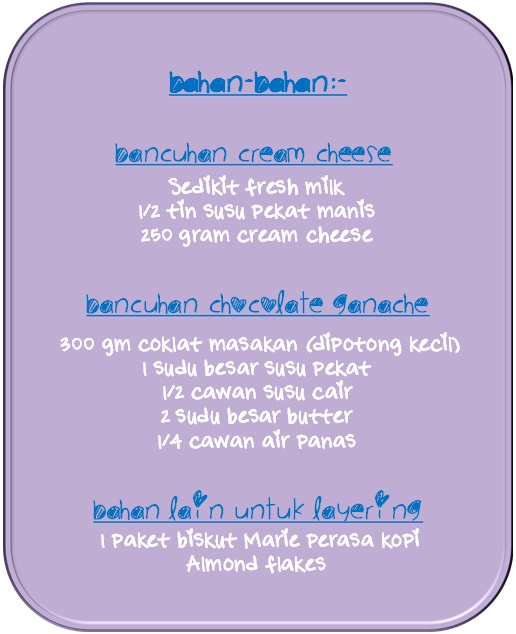 Bahan-Bahan:-
Bancuhan cream cheese
Sedikit fresh milk
1/2 tin susu pekat manis
250 gram cream cheese
Bancuhan chocolate ganache
300 gm coklat masakan (dipotong kecil)
1 sudu besar susu pekat
1/2 cawan susu cair
2 sudu besar butter
1/4 cawan air panas
Bahan lain untuk layering
1 paket biskut Marie perasa kopi
Almond flakes